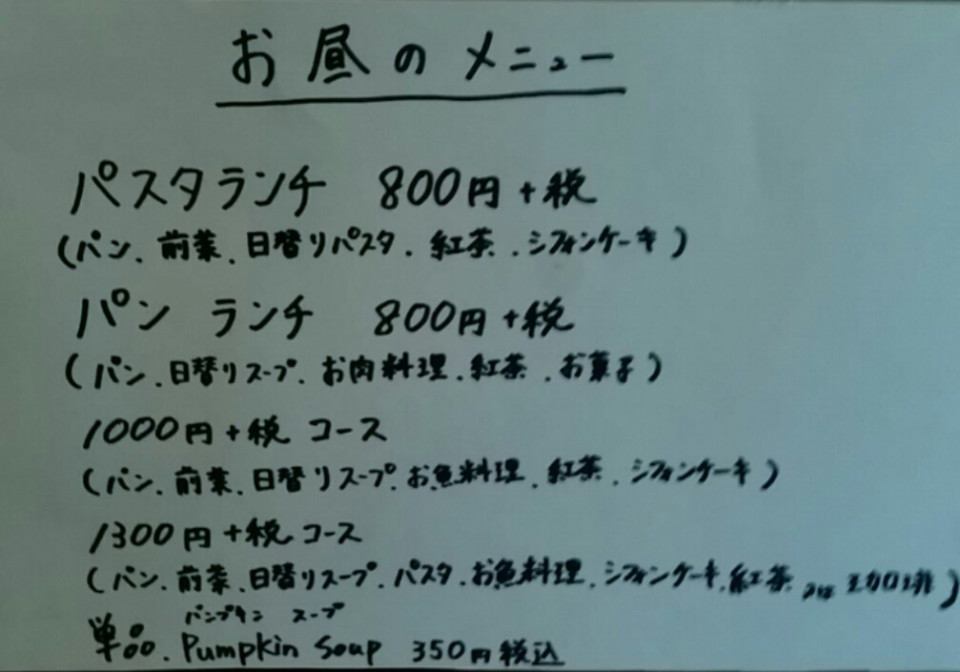 お昼のメニュー
パスタランチ 800円+税
(パン、前菜、日替りパスタ、紅茶、シフォンケーキ)
パン ランチ 800円+税
(パン、日替りスープ、お肉料理、紅茶、お菓子)
1000円+税 コース
(パン、前菜、日替りスープ、お魚料理、紅茶、シフォンケーキ)
1300円+税 コース
(パン、前菜、日替りスープ、パスタ、お魚料理、シフォンケーキ、紅茶)
パンプキン スープ
単品、Pumpkin Soup 350円税込